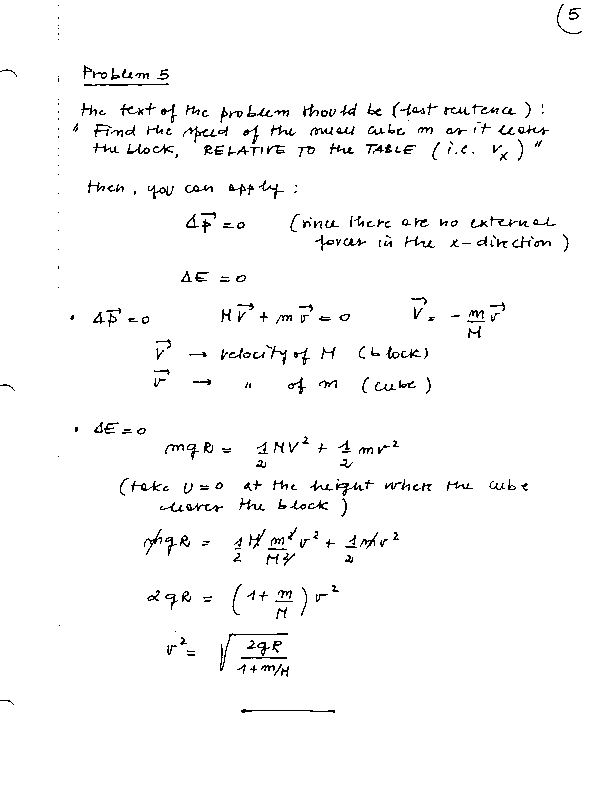 (5
Problem 5
the text of the problem should be (last sentence) :
" Find the speed of the small cube m as it leaves
the block, RELATIVE TO the TABLE (i.e. vₓ) "
then, you can apply :
Δp⃗ = 0 (since there are no external
forces in the x-direction)
ΔE = 0
• Δp⃗ = 0 MV⃗ + mv⃗ = 0 V⃗ = - m/M v⃗
V⃗ → velocity of M (block)
v⃗ → " of m (cube)
• ΔE = 0
mgR = 1/2 MV² + 1/2 mv²
(take U=0 at the height where the cube
leaves the block)
mgR = 1/2 M m²/M² v² + 1/2 mv²
2gR = (1 + m/M) v²
v² = √(2gR/(1+m/M))